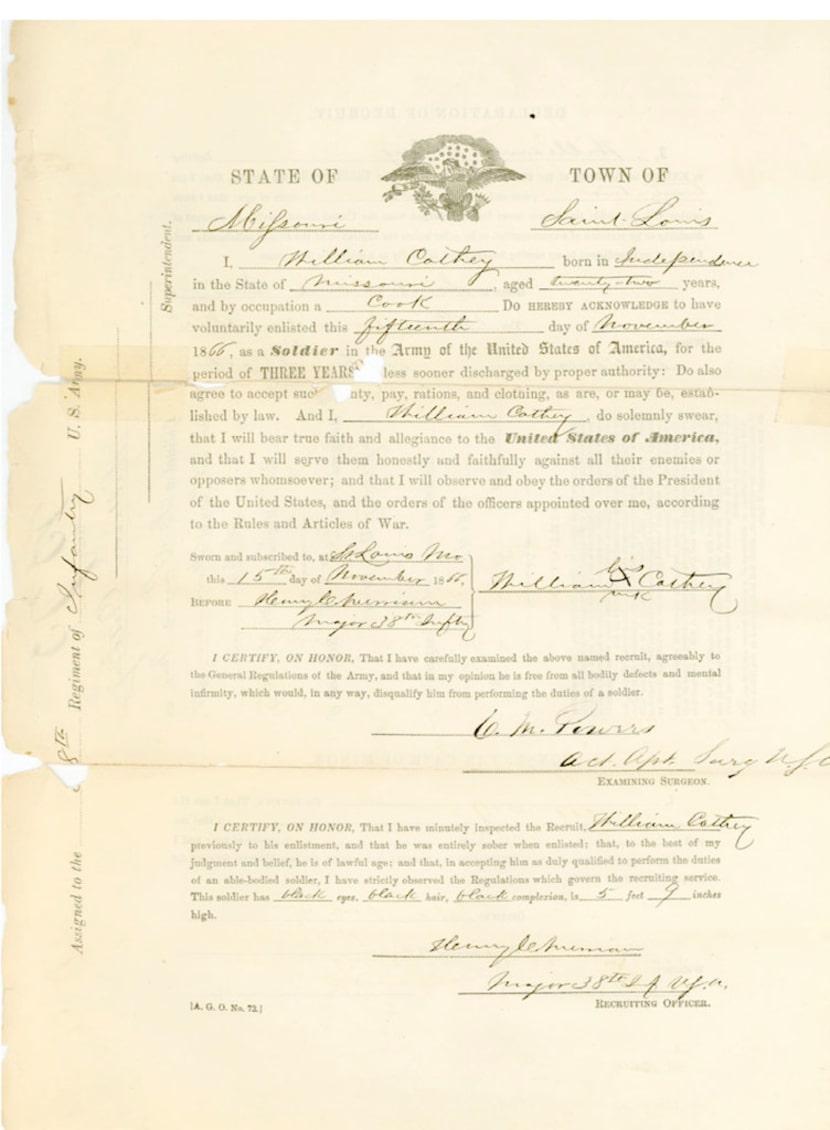 STATE OF TOWN OF
Missouri Saint Louis
I, William Cathey born in Independence
in the State of Missouri, aged twenty-two years,
and by occupation a Cook Do HEREBY ACKNOWLEDGE to have
voluntarily enlisted this fifteenth day of November
1866, as a Soldier in the Army of the United States of America, for the
period of THREE YEARS less sooner discharged by proper authority: Do also
agree to accept such nty, pay, rations, and clothing, as are, or may be, estab-
lished by law. And I, William Cathey, do solemnly swear,
that I will bear true faith and allegiance to the United States of America,
and that I will serve them honestly and faithfully against all their enemies or
opposers whomsoever; and that I will observe and obey the orders of the President
of the United States, and the orders of the officers appointed over me, according
to the Rules and Articles of War.
Sworn and subscribed to, at St Louis Mo
this 15th day of November 1866,
BEFORE
Major 38th Infty
William his X mrk Cathey
I CERTIFY, ON HONOR, That I have carefully examined the above named recruit, agreeably to
the General Regulations of the Army, and that in my opinion he is free from all bodily defects and mental
infirmity, which would, in any way, disqualify him from performing the duties of a soldier.
C. M. Powers
Act. Asst. Surg U.S.A
EXAMINING SURGEON.
I CERTIFY, ON HONOR, That I have minutely inspected the Recruit, William Cathey
previously to his enlistment, and that he was entirely sober when enlisted; that, to the best of my
judgment and belief, he is of lawful age; and that, in accepting him as duly qualified to perform the duties
of an able-bodied soldier, I have strictly observed the Regulations which govern the recruiting service.
This soldier has black eyes, black hair, black complexion, is 5 feet 9 inches
high.
Major 38th Inf U.S.A.
RECRUITING OFFICER.
[A. G. O. No. 73.]
Superintendent.
Assigned to the 8th Regiment of Infantry U. S. Army.